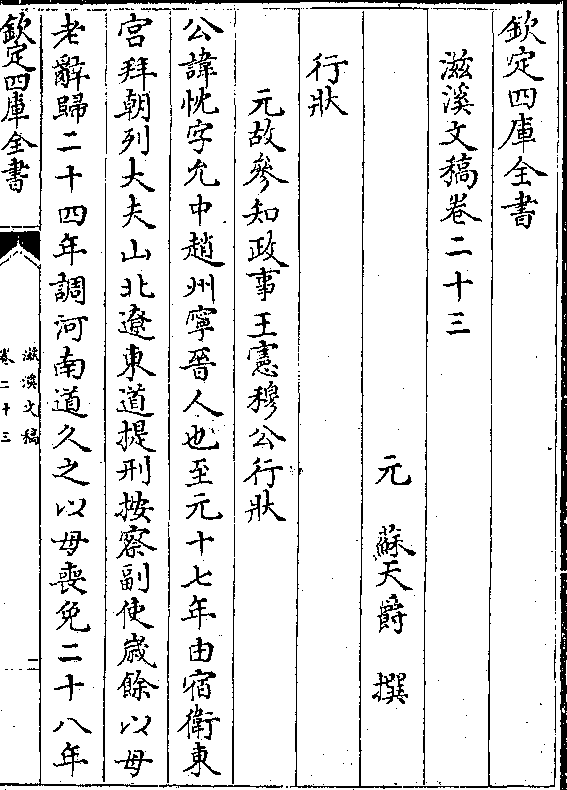 欽定四庫全書
滋溪文稿卷二十三
元 蘇天爵 撰
行狀
元故參知政事王憲穆公行狀
公諱忱字允中趙州寧晉人也至元十七年由宿衛東
宮拜朝列大夫山北遼東道提刑按察副使歲餘以母
老辭歸二十四年調河南道久之以母喪免二十八年
欽定四庫全書
滋溪文稿
卷二十三
一